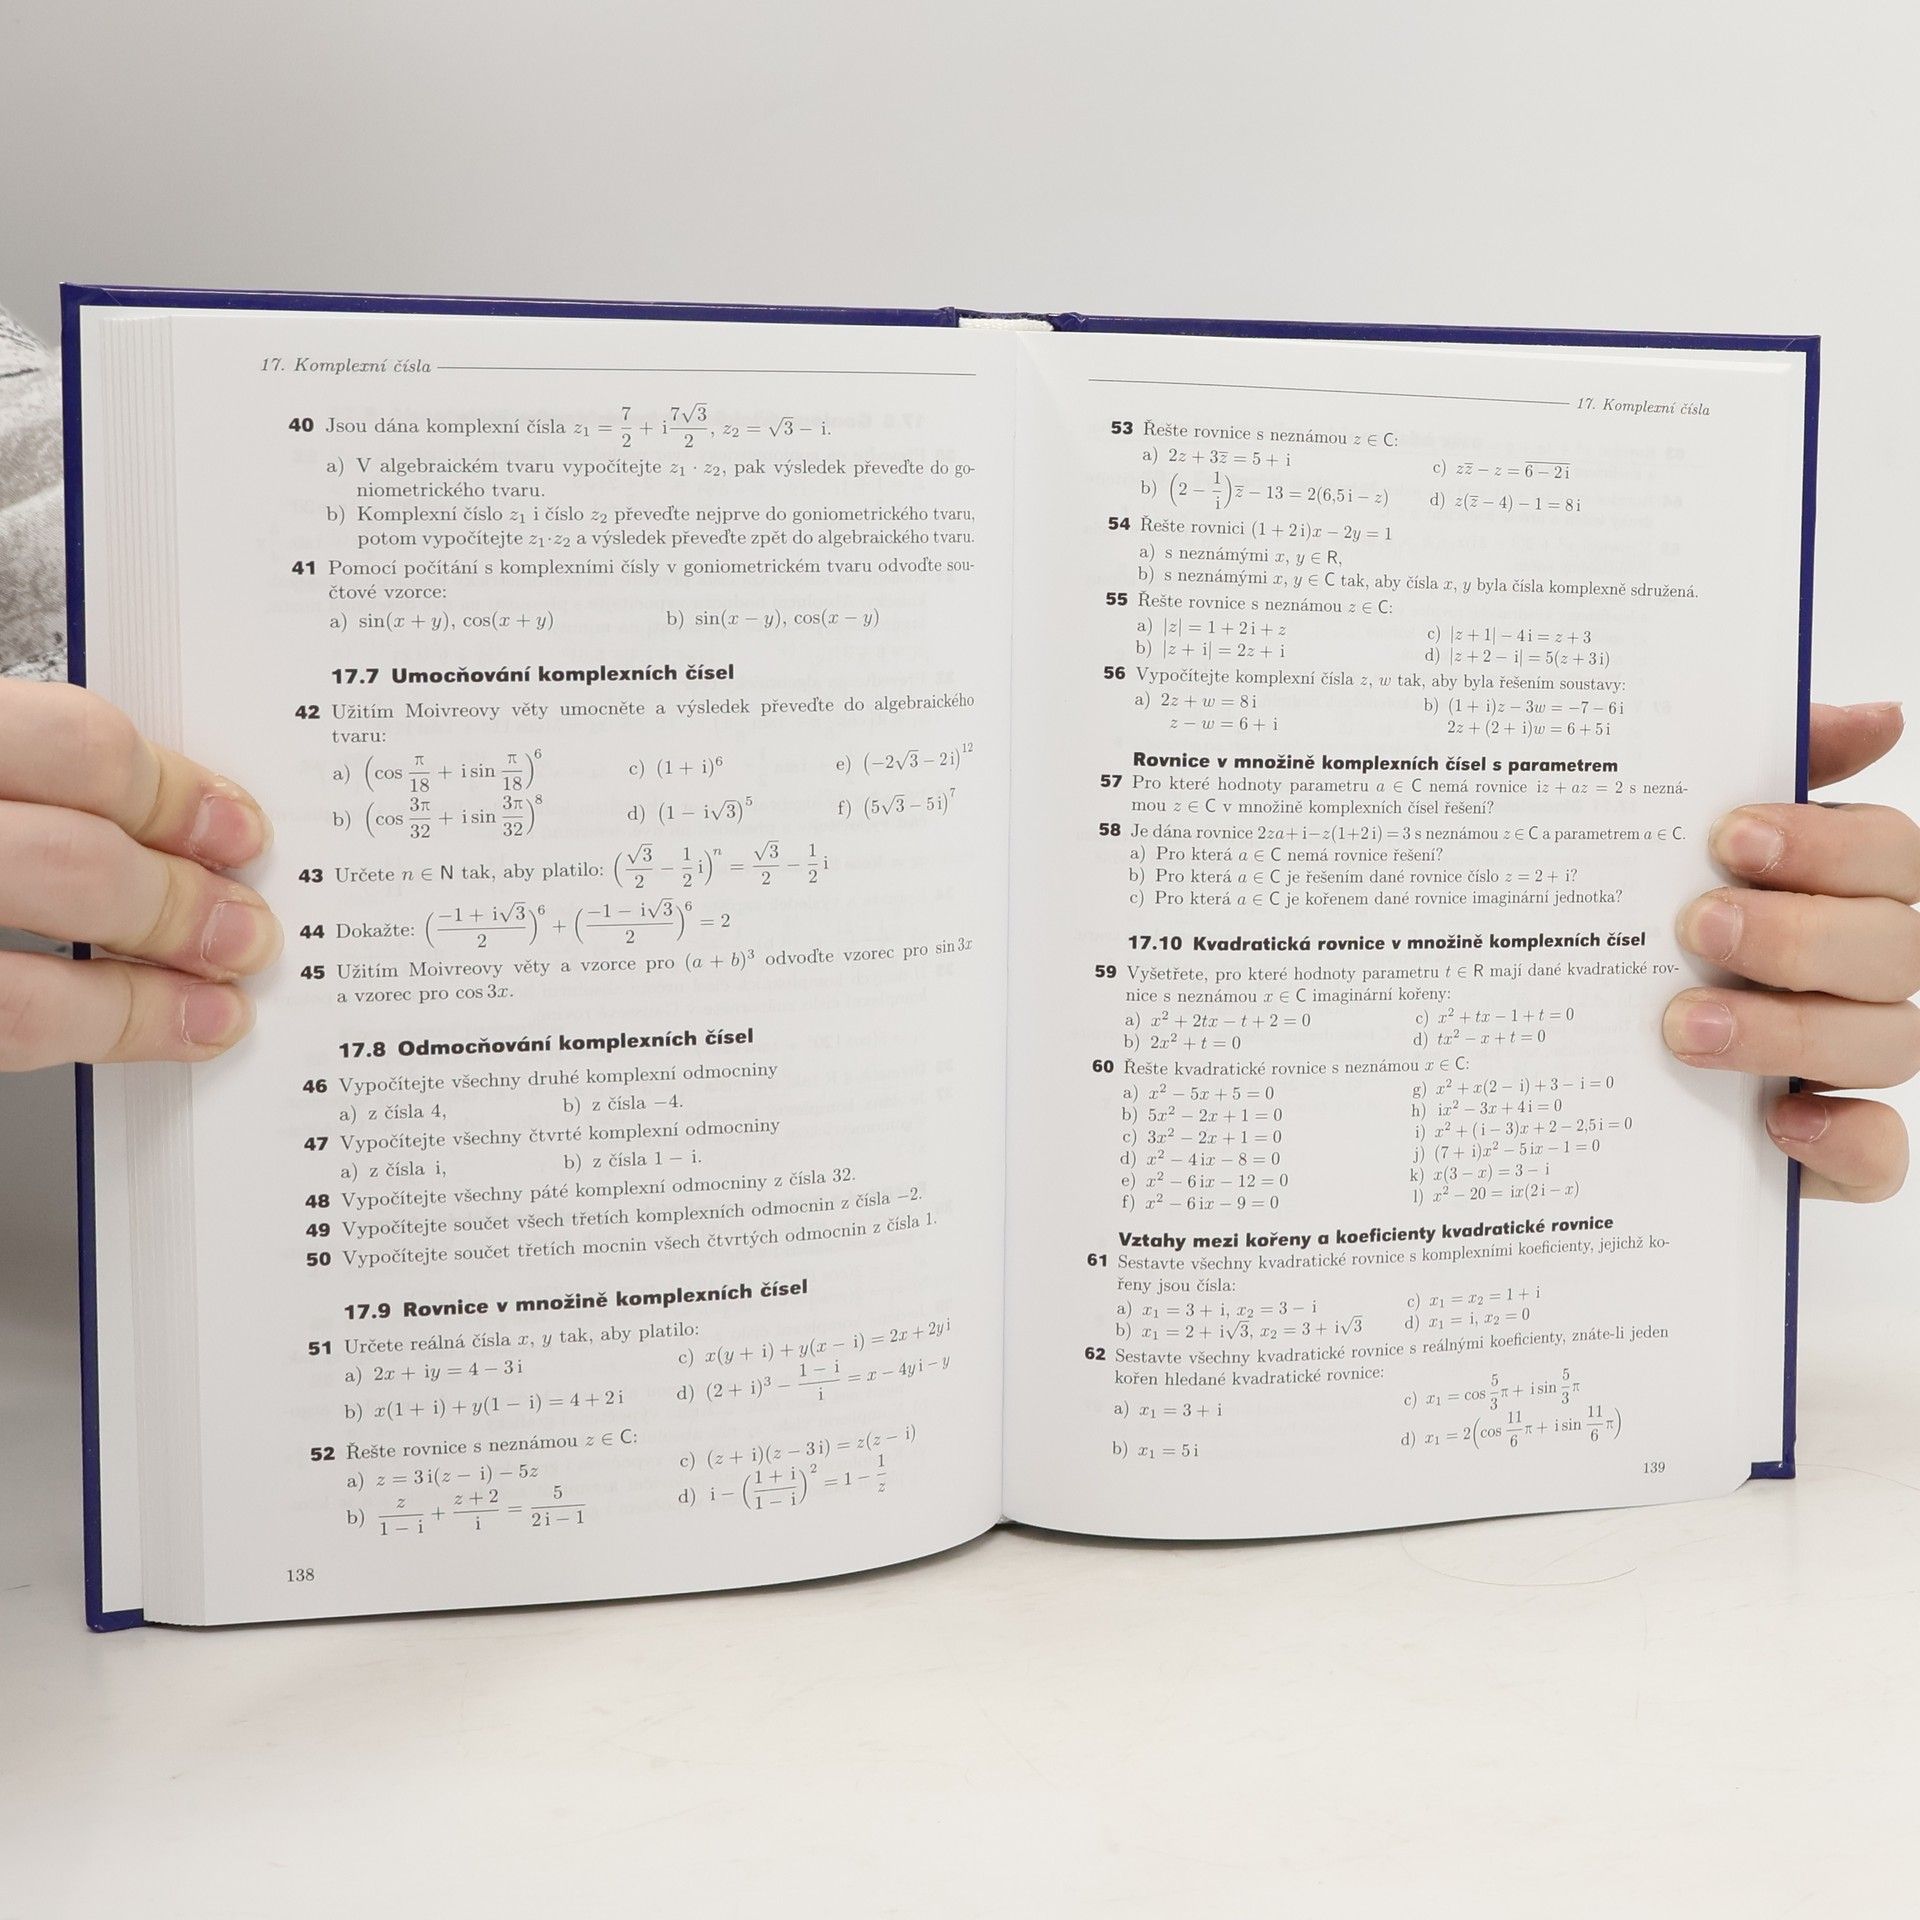 17. Komplexní čísla
40 Jsou dána komplexní čísla z₁ = 7/2 + i 7√3/2, z₂ = √3 − i.
a) V algebraickém tvaru vypočítejte z₁ · z₂, pak výsledek převeďte do go-
niometrického tvaru.
b) Komplexní číslo z₁ i číslo z₂ převeďte nejprve do goniometrického tvaru,
potom vypočítejte z₁·z₂ a výsledek převeďte zpět do algebraického tvaru.
41 Pomocí počítání s komplexními čísly v goniometrickém tvaru odvoďte sou-
čtové vzorce:
a) sin(x + y), cos(x + y) b) sin(x − y), cos(x − y)
17.7 Umocňování komplexních čísel
42 Užitím Moivreovy věty umocněte a výsledek převeďte do algebraického
tvaru:
a) (cos π/18 + i sin π/18)⁶ c) (1 + i)⁶ e) (−2√3 − 2i)¹²
b) (cos 3π/32 + i sin 3π/32)⁸ d) (1 − i√3)⁵ f) (5√3 − 5i)⁷
43 Určete n ∈ N tak, aby platilo: (√3/2 − 1/2 i)ⁿ = √3/2 − 1/2 i
44 Dokažte: ((−1 + i√3)/2)⁶ + ((−1 − i√3)/2)⁶ = 2
45 Užitím Moivreovy věty a vzorce pro (a + b)³ odvoďte vzorec pro sin 3x
a vzorec pro cos 3x.
17.8 Odmocňování komplexních čísel
46 Vypočítejte všechny druhé komplexní odmocniny
a) z čísla 4, b) z čísla −4.
47 Vypočítejte všechny čtvrté komplexní odmocniny
a) z čísla i, b) z čísla 1 − i.
48 Vypočítejte všechny páté komplexní odmocniny z čísla 32.
49 Vypočítejte součet všech třetích komplexních odmocnin z čísla −2.
50 Vypočítejte součet třetích mocnin všech čtvrtých odmocnin z čísla 1.
17.9 Rovnice v množině komplexních čísel
51 Určete reálná čísla x, y tak, aby platilo:
a) 2x + iy = 4 − 3i c) x(y + i) + y(x − i) = 2x + 2yi
b) x(1 + i) + y(1 − i) = 4 + 2i d) (2 + i)³ − (1 − i)/i = x − 4yi − y
52 Řešte rovnice s neznámou z ∈ C:
a) z = 3i(z − i) − 5z c) (z + i)(z − 3i) = z(z − i)
b) z/(1 − i) + (z + 2)/i = 5/(2i − 1) d) i − ((1 + i)/(1 − i))² = 1 − 1/z
138
17. Komplexní čísla
53 Řešte rovnice s neznámou z ∈ C:
a) 2z + 3z̅ = 5 + i c) zz̅ − z = 6̅ ̅−̅ ̅2̅i̅
b) (2 − 1/i)z̅ − 13 = 2(6,5i − z) d) z(z̅ − 4) − 1 = 8i
54 Řešte rovnici (1 + 2i)x − 2y = 1
a) s neznámými x, y ∈ R,
b) s neznámými x, y ∈ C tak, aby čísla x, y byla čísla komplexně sdružená.
55 Řešte rovnice s neznámou z ∈ C:
a) |z| = 1 + 2i + z c) |z + 1| − 4i = z + 3
b) |z + i| = 2z + i d) |z + 2 − i| = 5(z + 3i)
56 Vypočítejte komplexní čísla z, w tak, aby byla řešením soustavy:
a) 2z + w = 8i b) (1 + i)z − 3w = −7 − 6i
z − w = 6 + i 2z + (2 + i)w = 6 + 5i
Rovnice v množině komplexních čísel s parametrem
57 Pro které hodnoty parametru a ∈ C nemá rovnice iz + az = 2 s nezná-
mou z ∈ C v množině komplexních čísel řešení?
58 Je dána rovnice 2za+i−z(1+2i) = 3 s neznámou z ∈ C a parametrem a ∈ C.
a) Pro která a ∈ C nemá rovnice řešení?
b) Pro která a ∈ C je řešením dané rovnice číslo z = 2 + i?
c) Pro která a ∈ C je kořenem dané rovnice imaginární jednotka?
17.10 Kvadratická rovnice v množině komplexních čísel
59 Vyšetřete, pro které hodnoty parametru t ∈ R mají dané kvadratické rov-
nice s neznámou x ∈ C imaginární kořeny:
a) x² + 2tx − t + 2 = 0 c) x² + tx − 1 + t = 0
b) 2x² + t = 0 d) tx² − x + t = 0
60 Řešte kvadratické rovnice s neznámou x ∈ C:
a) x² − 5x + 5 = 0 g) x² + x(2 − i) + 3 − i = 0
b) 5x² − 2x + 1 = 0 h) ix² − 3x + 4i = 0
c) 3x² − 2x + 1 = 0 i) x² + (i − 3)x + 2 − 2,5i = 0
d) x² − 4ix − 8 = 0 j) (7 + i)x² − 5ix − 1 = 0
e) x² − 6ix − 12 = 0 k) x(3 − x) = 3 − i
f) x² − 6ix − 9 = 0 l) x² − 20 = ix(2i − x)
Vztahy mezi kořeny a koeficienty kvadratické rovnice
61 Sestavte všechny kvadratické rovnice s komplexními koeficienty, jejichž ko-
řeny jsou čísla:
a) x₁ = 3 + i, x₂ = 3 − i c) x₁ = x₂ = 1 + i
b) x₁ = 2 + i√3, x₂ = 3 + i√3 d) x₁ = i, x₂ = 0
62 Sestavte všechny kvadratické rovnice s reálnými koeficienty, znáte-li jeden
kořen hledané kvadratické rovnice:
a) x₁ = 3 + i c) x₁ = cos 5/3 π + i sin 5/3 π
b) x₁ = 5i d) x₁ = 2(cos 11/6 π + i sin 11/6 π)
139